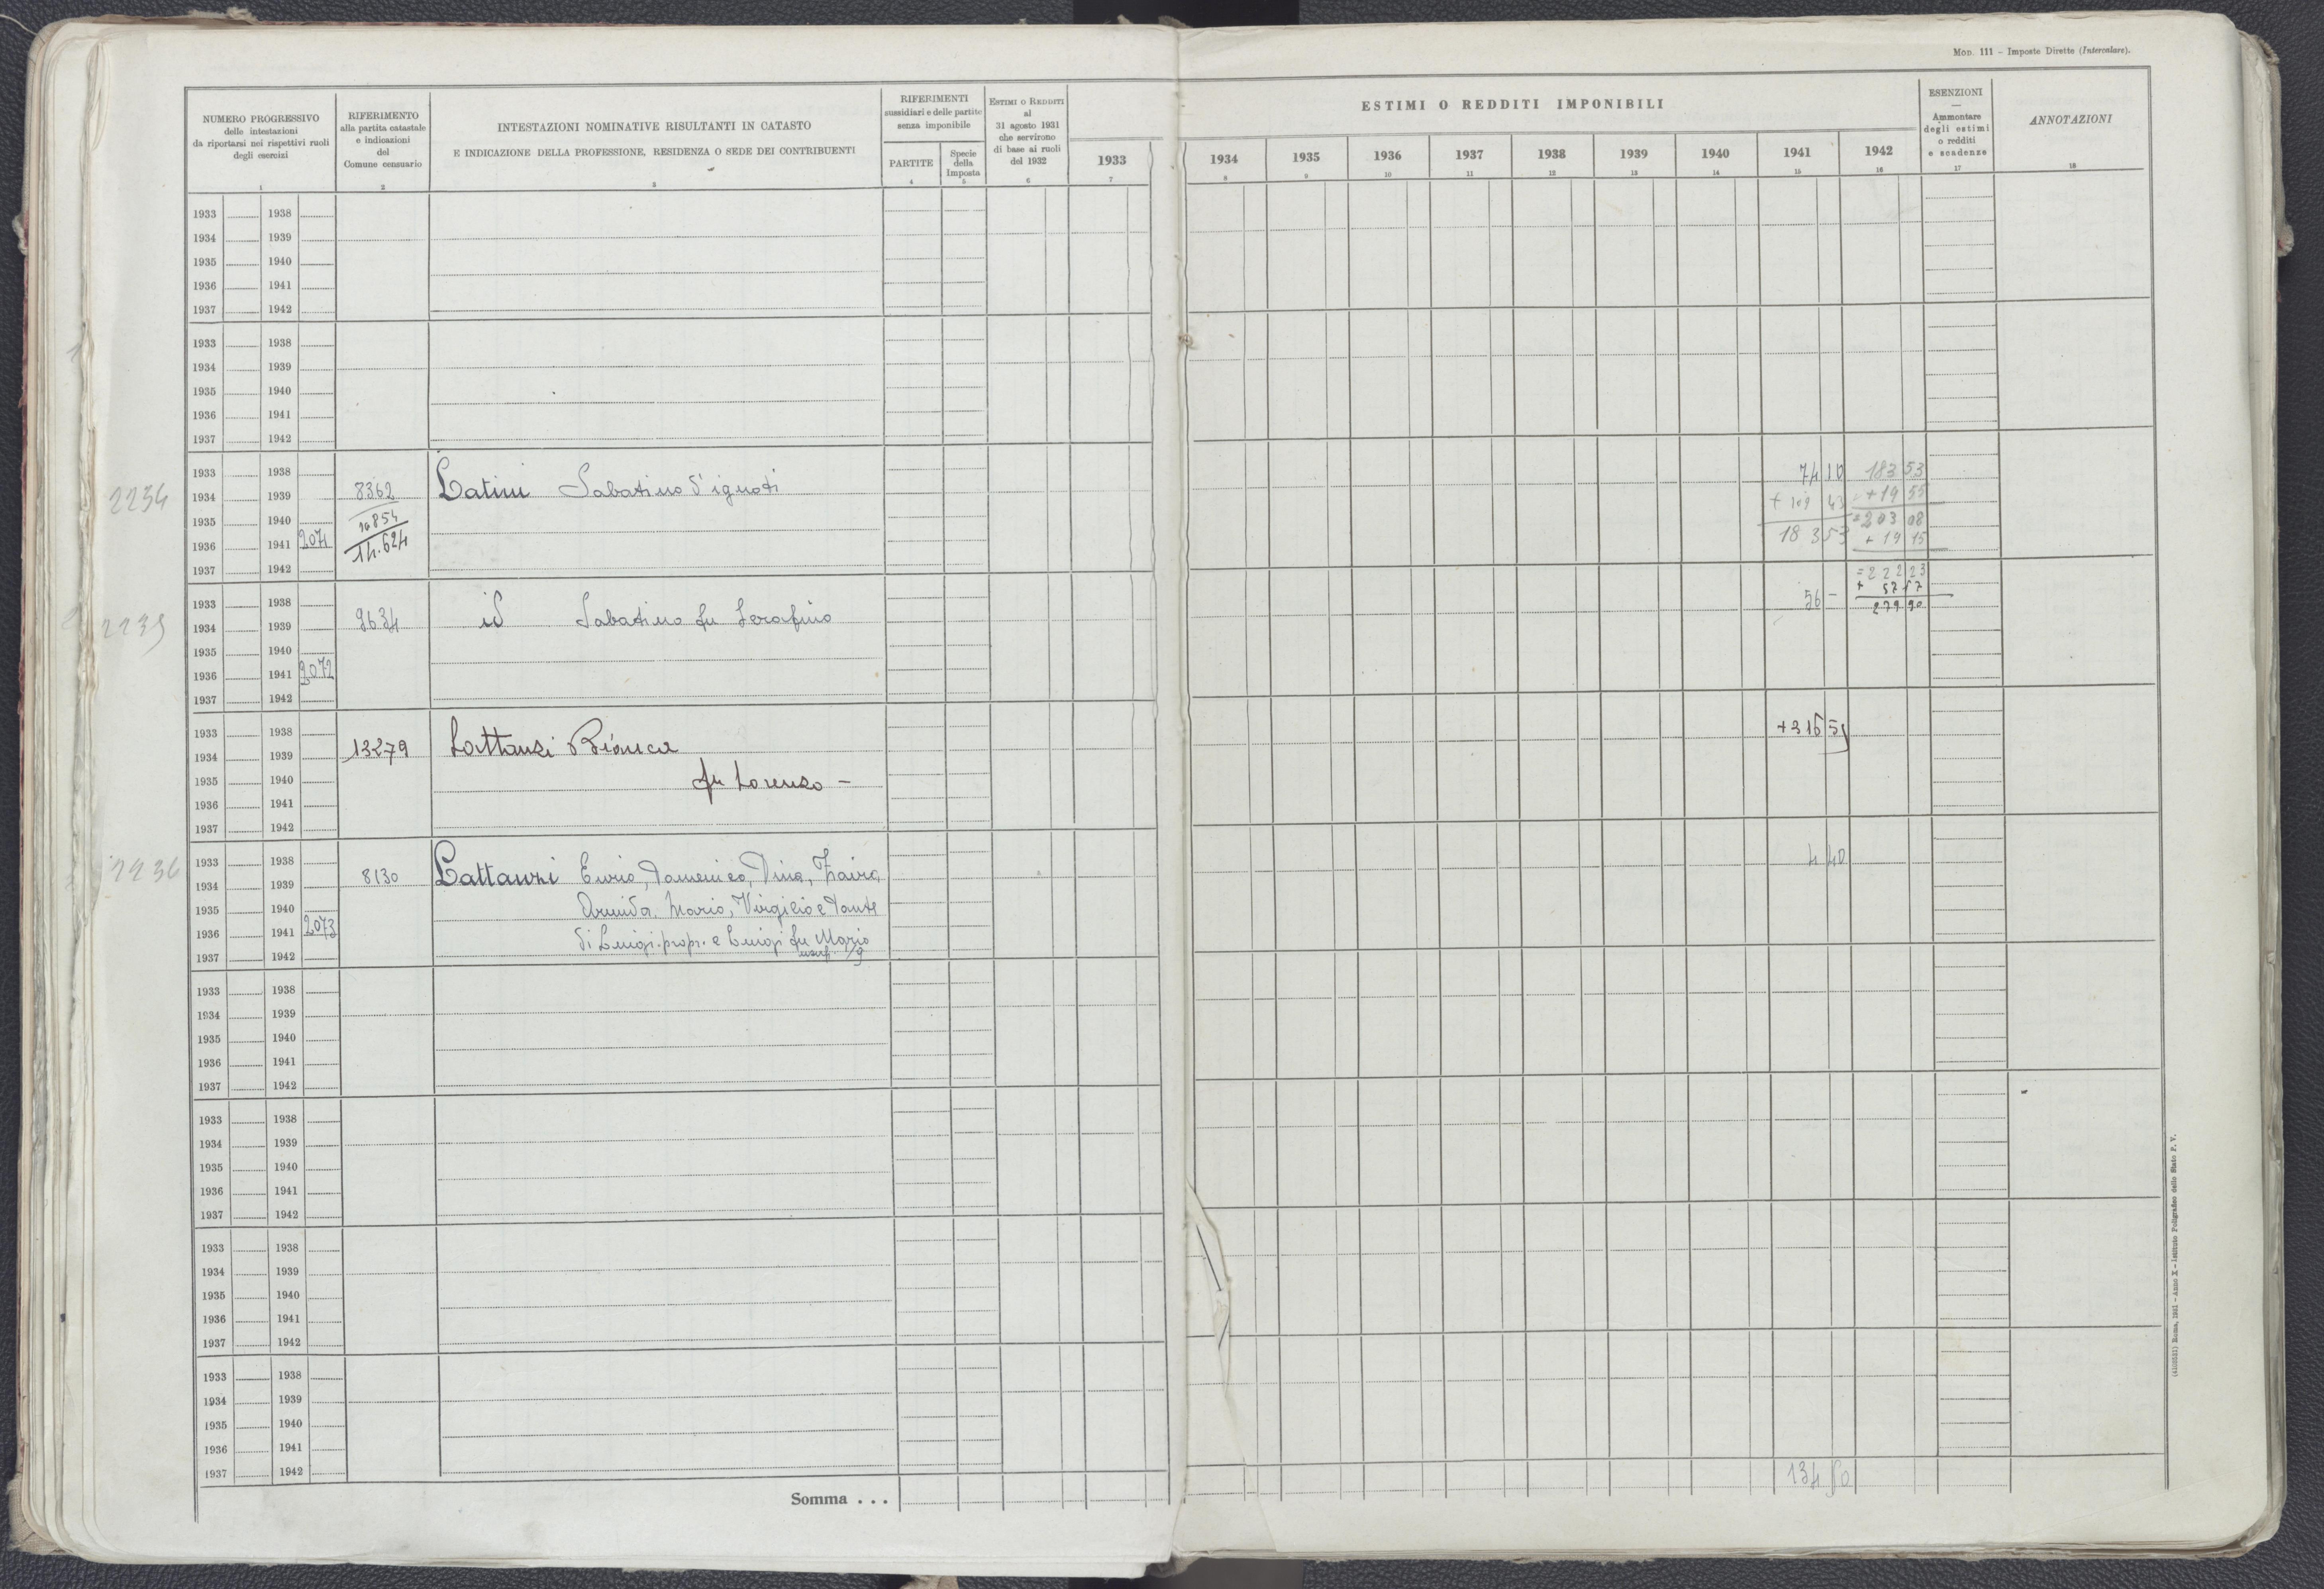 Mod. 111 – Imposte Dirette (Intercalare).
NUMERO PROGRESSIVO
delle intestazioni
da riportarsi nei rispettivi ruoli
degli esercizi
1
RIFERIMENTO
alla partita catastale
e indicazioni
del
Comune censuario
2
INTESTAZIONI NOMINATIVE RISULTANTI IN CATASTO
E INDICAZIONE DELLA PROFESSIONE, RESIDENZA O SEDE DEI CONTRIBUENTI
3
RIFERIMENTI
sussidiari e delle partite
senza imponibile
PARTITE
4
Specie
della
Imposta
5
Estimi o Redditi
al
31 agosto 1931
che servirono
di base ai ruoli
del 1932
6
ESTIMI O REDDITI IMPONIBILI
1933 1934 1935 1936 1937 1938 1939 1940 1941 1942
7 8 9 10 11 12 13 14 15 16
ESENZIONI
—
Ammontare
degli estimi
o redditi
e scadenze
17
ANNOTAZIONI
18
1933 1938
1934 1939
1935 1940
1936 1941
1937 1942
1933 1938
1934 1939
1935 1940
1936 1941
1937 1942
1933 1938 74 10 183 53
2234 1934 1939 8362 Latini Sabatino d'ignoti + 109 43 + 19 55
1935 1940 10854 = 203 08
1936 1941 2071 14.624 183 53 + 19 15
1937 1942
= 222 23
1933 1938 + 57 67
56 – 279 90
2235 1934 1939 9634 id Sabatino fu Serafino
1935 1940
1936 1941 2072
1937 1942
1933 1938 + 316 59
1934 1939 13279 Lattanzi Bianca
1935 1940 fu Lorenzo –
1936 1941
1937 1942
1933 1938 4 40
2236 1934 1939 8130 Lattanzi Enrio, Domenico, Dina, Zaira,
1935 1940 Armida, Mario, Virgilio e Dante
1936 1941 2073 di Luigi. propr. e Luigi fu Mario
1937 1942 usuf.
1933 1938
1934 1939
1935 1940
1936 1941
1937 1942
1933 1938
1934 1939
1935 1940
1936 1941
1937 1942
1933 1938
1934 1939
1935 1940
1936 1941
1937 1942
1933 1938
1934 1939
1935 1940
1936 1941
1937 1942
Somma . . . 134 50
(4103531) Roma, 1931 – Anno X – Istituto Poligrafico dello Stato P. V.